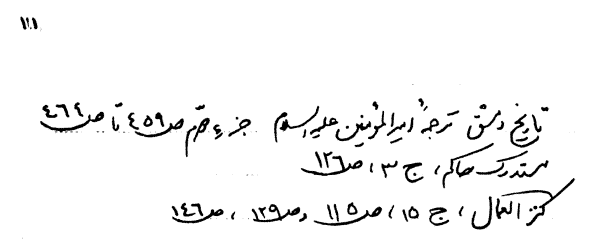 ١١١
تاریخ دمشق ترجمهٔ امیرالمؤمنین علیه السلام جزء دوّم ص ٤٥٩ تا ص ٤٦٤
مستدرک حاکم، ج ٣، ص ١٢٦
کنز العمال، ج ١٥، ص ١١٥ وص ١٢٩، ص ١٤٦